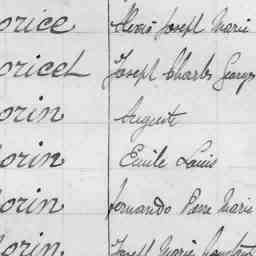 orice Alexis Joseph Marie
oricel Joseph Charles Georges
orin Auguste
orin Emile Louis
orin Fernando Pierre Marie
orin Joseph Marie